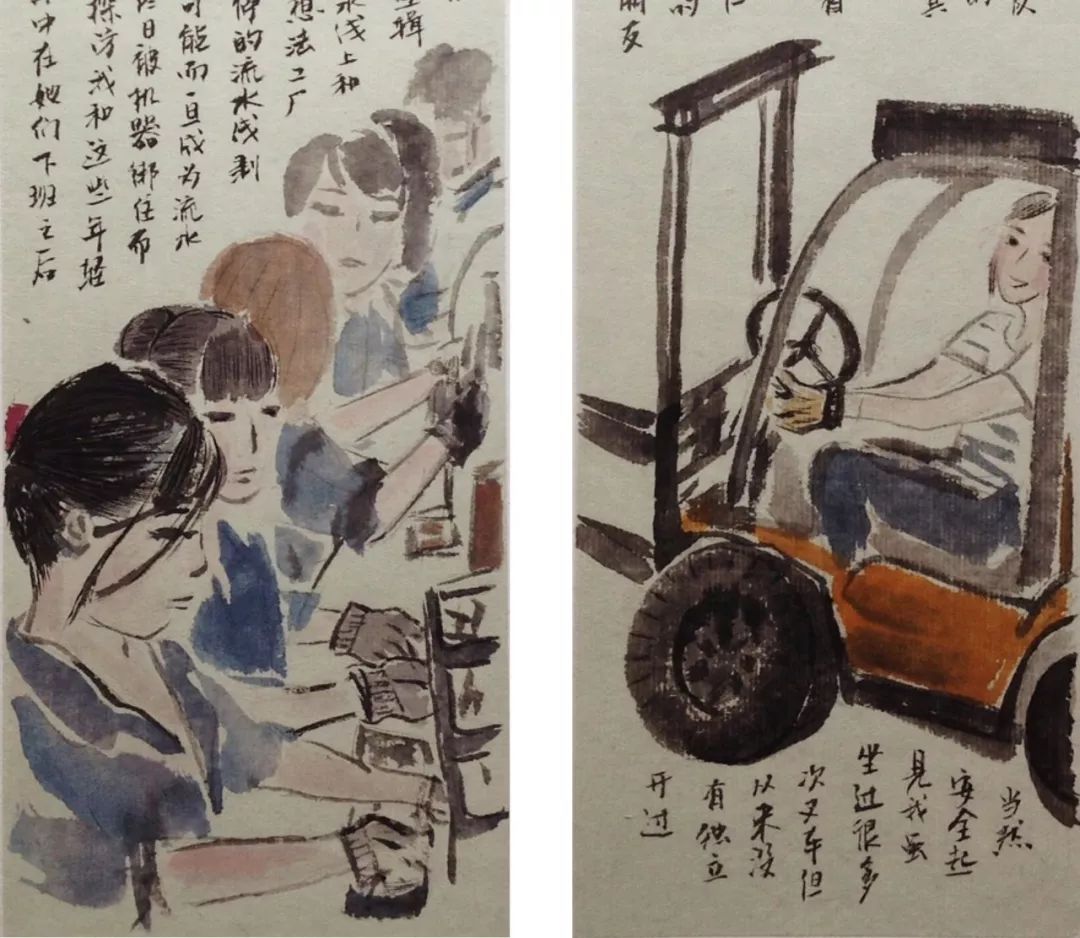 辑
水线上和
想法工厂
的流水成剥
可能而且成为流水
日被机器绑住而
探访我和这些年轻
中在她们下班之后
的
有
的
朋友
当然
安全起
见我虽
坐过很多
次叉车但
从来没
有独立
开过